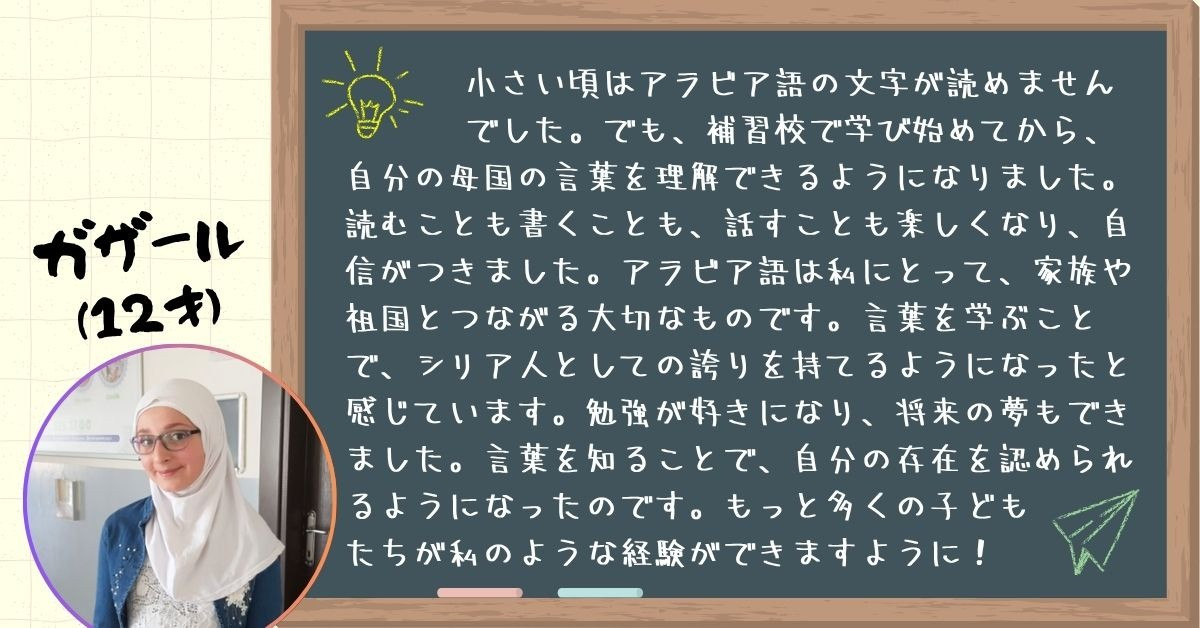 ガザール
(12才)
小さい頃はアラビア語の文字が読めません
でした。でも、補習校で学び始めてから、
自分の母国の言葉を理解できるようになりました。
読むことも書くことも、話すことも楽しくなり、自
信がつきました。アラビア語は私にとって、家族や
祖国とつながる大切なものです。言葉を学ぶこと
で、シリア人としての誇りを持てるようになったと
感じています。勉強が好きになり、将来の夢もでき
ました。言葉を知ることで、自分の存在を認められ
るようになったのです。もっと多くの子ども
たちが私のような経験ができますように！